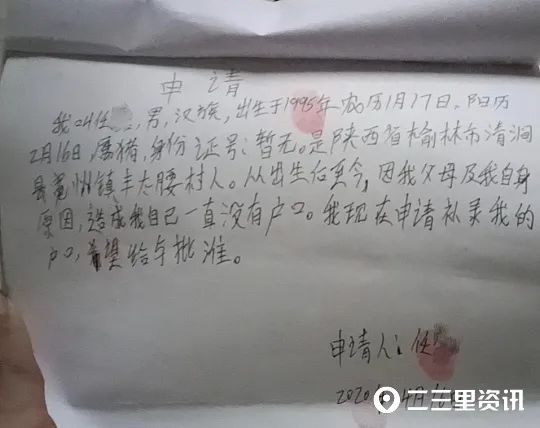 申请
我叫任 , 男, 汉族, 出生于1995年农历1月17日, 阳历
2月16日, 属猪, 身份证号: 暂无。是陕西省榆林市清涧
县宽州镇丰太腰村人。从出生后至今, 因我父母及我自身
原因, 造成我自己一直没有户口。我现在申请补录我的
户口, 希望给与批准。
申请人: 任
2020年4月16
二三里资讯